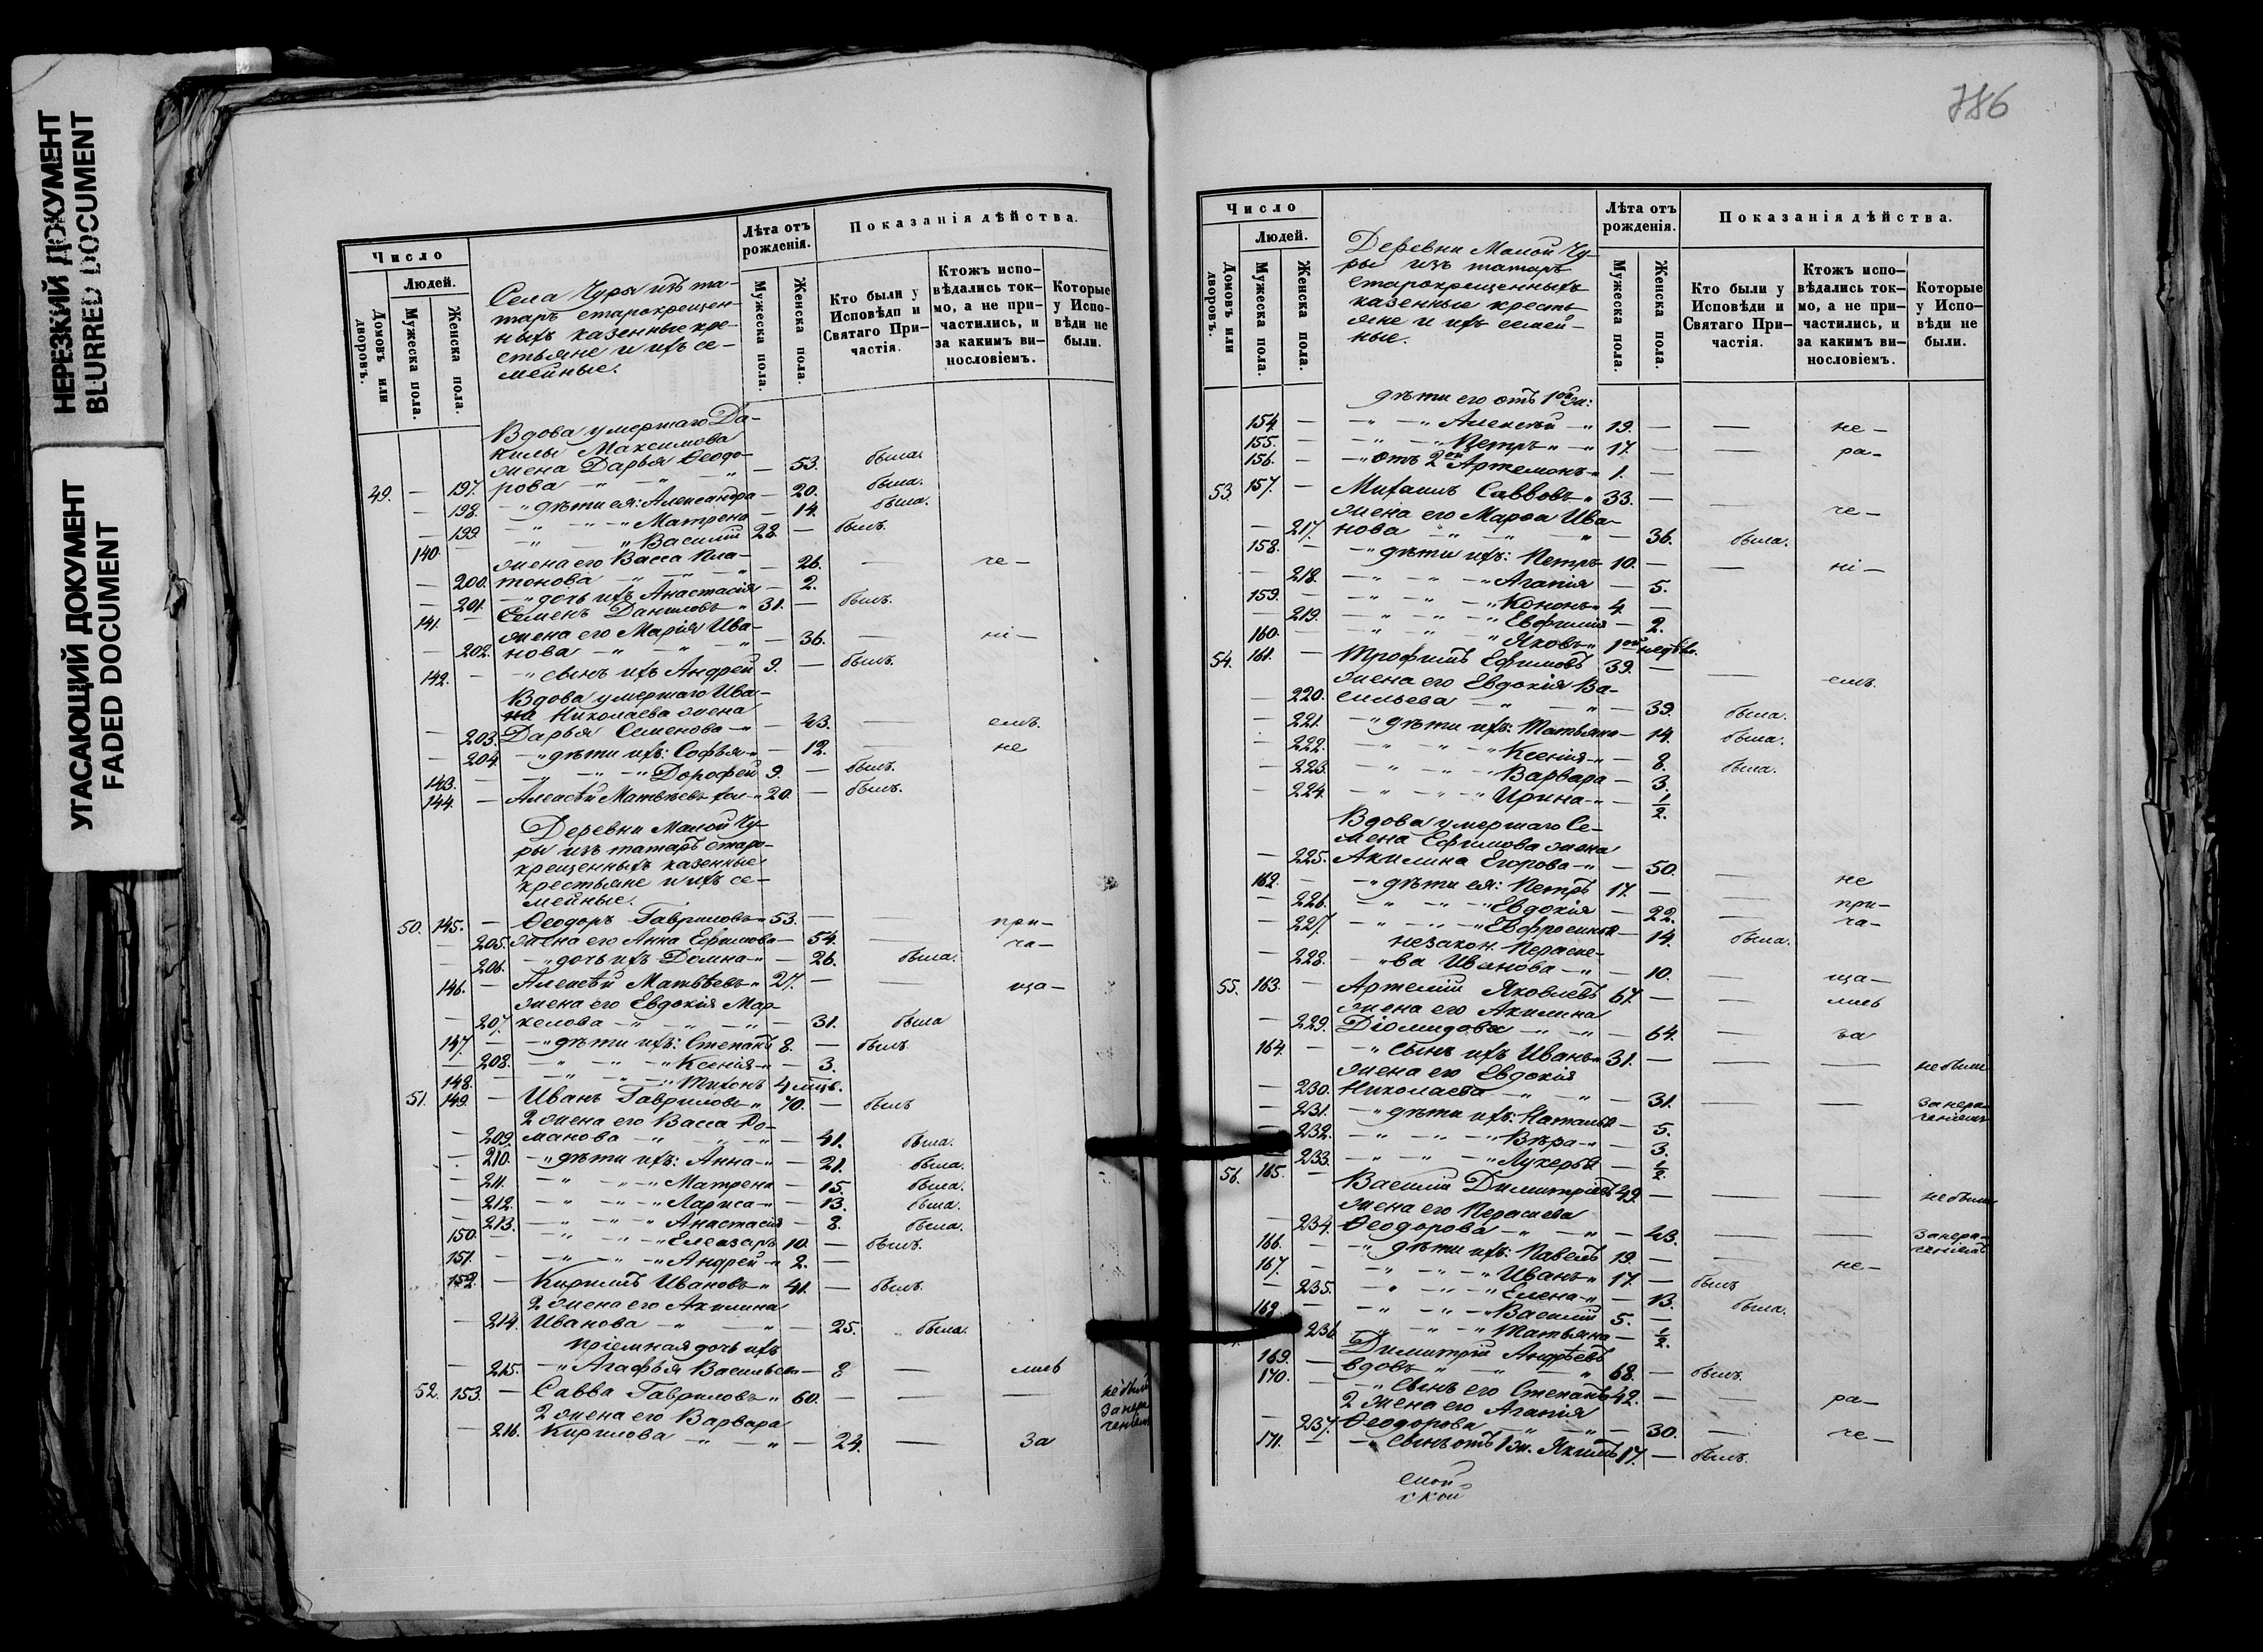 НЕРЕЗКИЙ ДОКУМЕНТ
BLURRED DOCUMENT
УГАСАЮЩИЙ ДОКУМЕНТ
FADED DOCUMENT
Число
Людей.
Домовъ или дворовъ.
Мужеска пола.
Женска пола.
Села Чуры изъ та-
таръ старокрещен-
ныхъ казенные кре-
стьяне и ихъ се-
мейные.
Лѣта отъ рожденія.
Мужеска пола.
Женска пола.
Показанія дѣйства.
Кто были у Исповѣди и Святаго При-частія.
Ктожъ испо-вѣдались ток-мо, а не при-частились, и за какимъ ви-нословіемъ.
Которые у Испо-вѣди не были.
Вдова умершаго Да-
нилы Максимова
жена Дарья Ѳеодо-
49. — 197. рова — 53. была.
— 198. дѣти ея: Александра — 20. была.
— 199. Матрена — 14. была.
140. — Василій 28. — былъ.
жена его Васса Пла-
— 200. тонова — 26. — че-
— 201. дочь ихъ Анастасія — 2.
141. — Семенъ Даниловъ 31. — былъ.
жена его Марія Ива-
— 202. нова — 36. — ні-
142. — сынъ ихъ Андрей 9. — былъ.
Вдова умершаго Ива-
на Николаева жена
— 203. Дарья Семенова — 43. — емъ.
— 204. дѣти ихъ: Софья — 12. — не
143. — Дорофей 9. — былъ.
144. — Алексѣй Матвѣевъ хол. 20. — былъ.
Деревни Малой Чу-
ры изъ татаръ старо-
крещенныхъ казенные
крестьяне и ихъ се-
мейные.
50. 145. — Ѳеодоръ Гавриловъ 53. — — при-
— 205. жена его Анна Ефимова — 54. — ча-
— 206. дочь ихъ Домна — 26. была.
146. — Алексѣй Матвѣевъ 27. — — ща-
жена его Евдокія Мар-
— 207. келова — 31. была
147. — дѣти ихъ: Степанъ 8. — былъ.
— 208. Ксенія — 3.
148. — Тихонъ 4 мѣс.
51. 149. — Иванъ Гавриловъ 70. — былъ
2 жена его Васса Ро-
— 209. манова — 41. была.
— 210. дѣти ихъ: Анна — 21. была.
— 211. Матрена — 15. была.
— 212. Лариса — 13. была.
— 213. Анастасія — 8. была.
150. — Елеазаръ 10. — былъ.
151. — Андрей 2. —
152. — Кирилъ Ивановъ 41. — былъ.
2 жена его Акилина
— 214. Иванова — 25. была.
пріемная дочь ихъ
— 215. Агафья Васильева — 8 — лись
52. 153. — Савва Гавриловъ 60. — — — не были
2 жена его Варвара за нера-
ченіемъ
— 216. Кирилова — 24. — за
786
Число
Людей.
Домовъ или дворовъ.
Мужеска пола.
Женска пола.
Деревни Малой Чу-
ры изъ татаръ
старокрещенныхъ
казенные кресть-
яне и ихъ семей-
ные.
Лѣта отъ рожденія.
Мужеска пола.
Женска пола.
Показанія дѣйства.
Кто были у Исповѣди и Святаго При-частія.
Ктожъ испо-вѣдались ток-мо, а не при-частились, и за какимъ ви-нословіемъ.
Которые у Испо-вѣди не были.
дѣти его отъ 1ой ж:
154. — Алексѣй 19. — — не-
155. — Петръ 17. — — ра-
156. — отъ 2ой Артемонъ 1. —
53. 157. — Михаилъ Саввовъ 33. — че-
жена его Марѳа Ива-
— 217. нова — 36. была.
158. — дѣти ихъ: Петръ 10. — — ні-
— 218. Агапія — 5.
159. — Кононъ 4. —
— 219. Евфимія — 2.
160. — Яковъ 1ой недѣли.
54. 161. — Трофимъ Ефимовъ 39. — — емъ.
жена его Евдокія Ва-
— 220. сильева — 39. была.
— 221. дѣти ихъ: Татьяна — 14. была.
— 222. Ксенія — 8. была.
— 223. Варвара — 3.
— 224. Ирина — 1/2.
Вдова умершаго Се-
мена Ефимова жена
— 225. Акилина Егорова — 50. — не
162. — дѣти ея: Петръ 17. — — при-
— 226. Евдокія — 22. — ча-
— 227. Евфросинья — 14. была.
незакон. Параске-
— 228. ва Иванова — 10. — ща-
55. 163. — Артемій Яковлевъ 67. — — лись
жена его Акилина
— 229. Діомидова — 64. — за
164. — сынъ ихъ Иванъ 31. — — — не были
жена его Евдокія
— 230. Николаева — 31. за нера-
ченіемъ
— 231. дѣти ихъ: Наталья — 5.
232. Вѣра — 3.
233. Лукерья — 1/2.
56. 165. — Василій Димитріевъ 49. — — — не были
жена его Параскева
— 234. Ѳеодорова — 43. — — за нера-
ченіемъ
166. — дѣти ихъ: Павелъ 19. — — не-
167. — Иванъ 17. — былъ
— 235. Елена — 13. была.
168. — Василій 5. —
236. Татьяна — 1/2.
169. — Димитрій Андреевъ
170. — вдовъ 68. — былъ.
сынъ его Степанъ 42. — — ра-
2 жена его Агапія
— 237. Ѳеодорова — 30. — че-
171. — сынъ отъ 1 ж. Якимъ 17. — былъ.